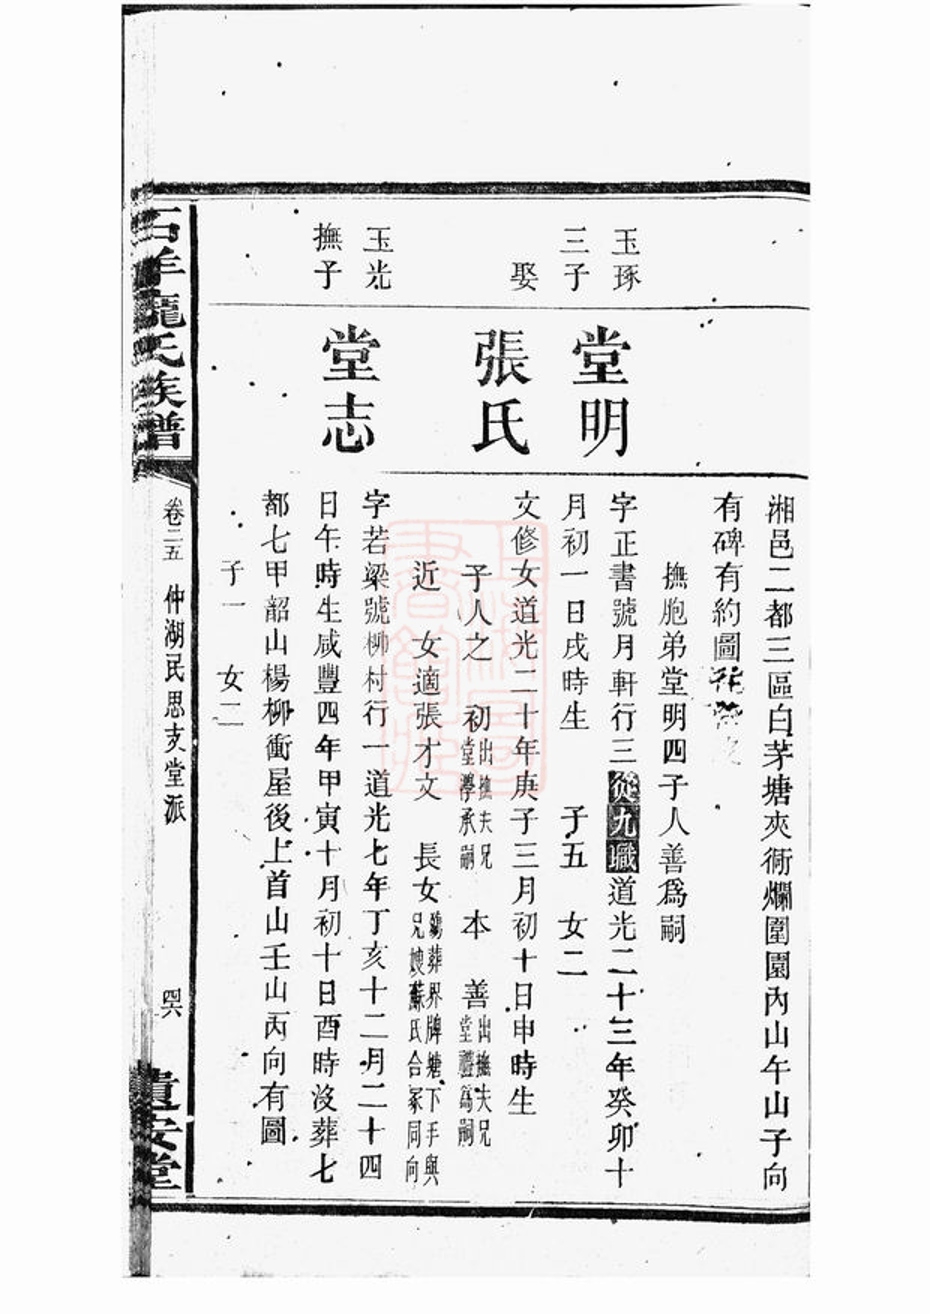 湘邑二都三區白茅塘夾衕爛圍園內山午山子向
有碑有約圖
撫胞弟堂明四子人善爲嗣
玉琢
三子
堂明
字正書號月軒行三從九職道光二十三年癸卯十
月初一日戌時生 子五 女二
娶
張氏
文修女道光二十年庚子三月初十日申時生
子人之 初出撫夫兄堂濘承嗣 本 善出撫夫兄堂禮爲嗣
近 女適張才文 長女殤葬界牌塘下手與兄嫂蘇氏合冢同向
玉光
撫子
堂志
字若梁號柳村行一道光七年丁亥十二月二十四
日午時生咸豐四年甲寅十月初十日酉時沒葬七
都七甲韶山楊柳衝屋後上首山壬山丙向有圖
子一 女二
石羊龐氏族譜
卷二五 仲湖民思支堂派
四六
貴安堂